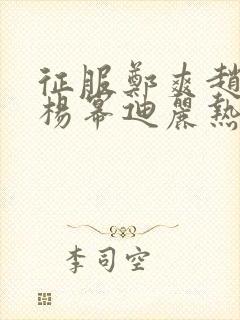 征服鄭爽趙
楊幂迪麗熱
李司空